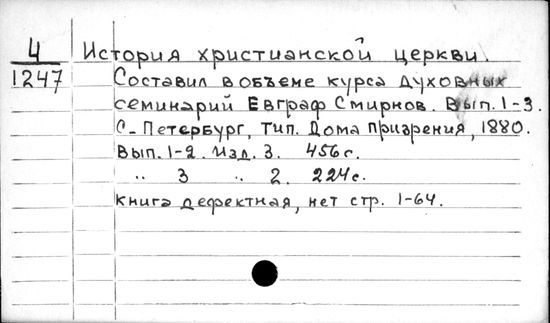 4 История христианской церкви.
1247 Составил в объеме курса духовных
семинарий Евграф Смирнов. Вып. 1-3.
С-Петербург, тип. Дома призрения, 1880.
Вып. 1-2. Изд. 3. 456 с.
" 3 " 2. 224 с.
книга дефектная, нет стр. 1-64.